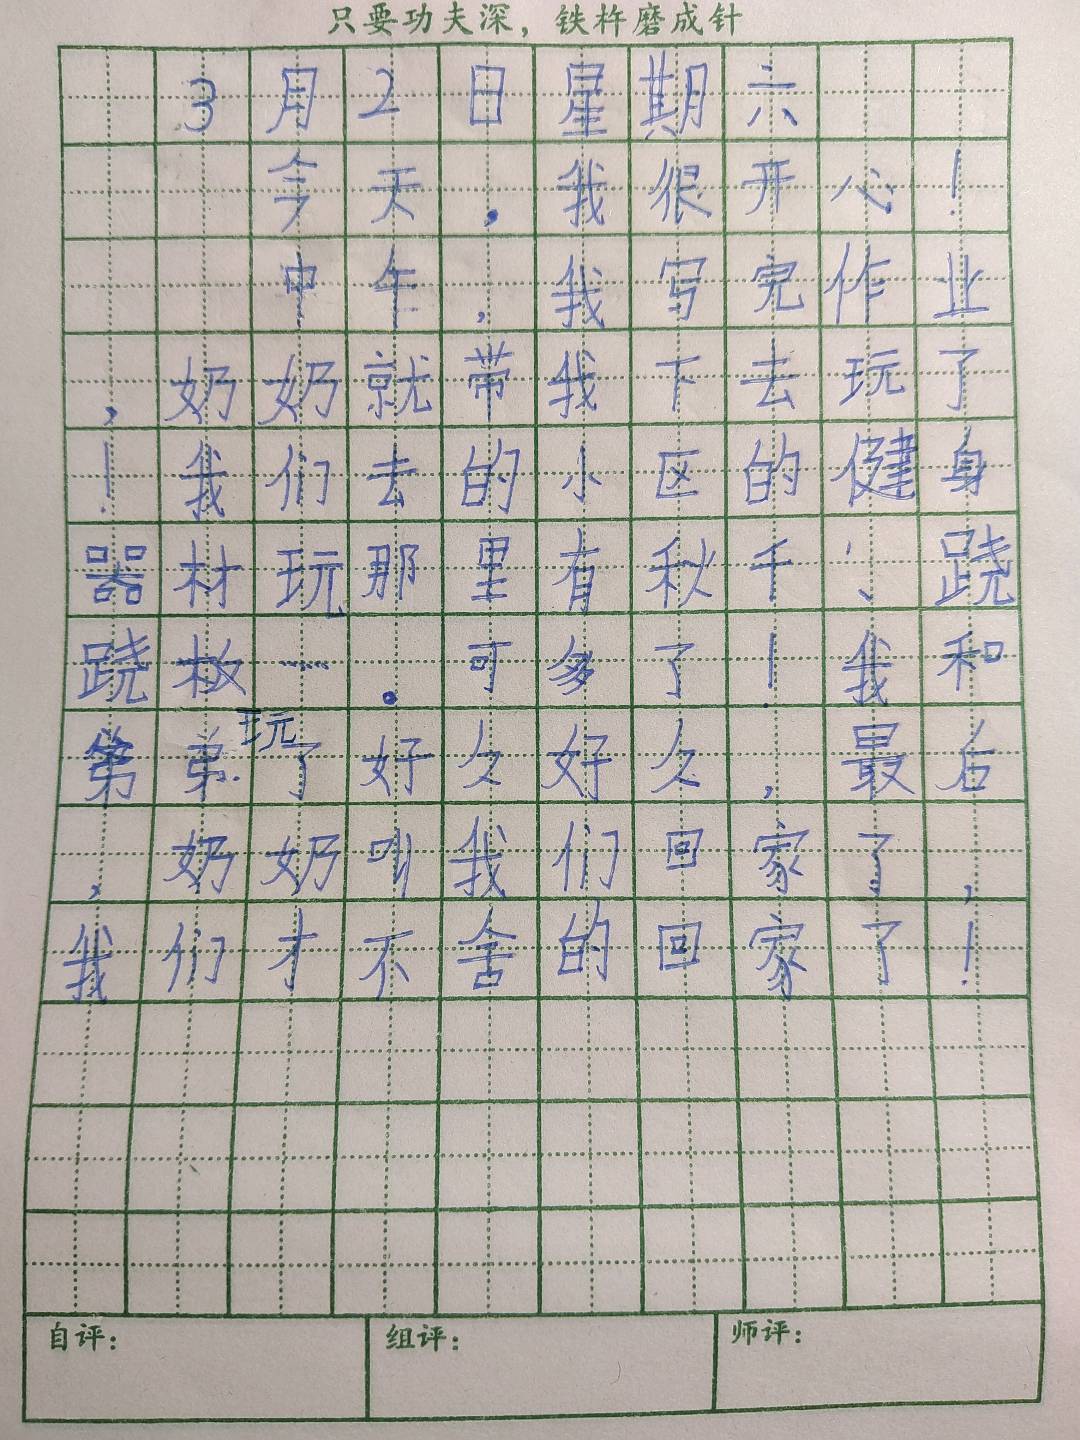 只要功夫深，铁杵磨成针
3月2日星期六
今天，我很开心！
中午，我写完作业
，奶奶就带我下去玩了
！我们去的小区的健身
器材玩那里有秋千、跷
跷板……。可多了！我和
弟弟玩了好久好久，最后
，奶奶叫我们回家了，
我们才不舍的回家了！
自评： 组评： 师评：